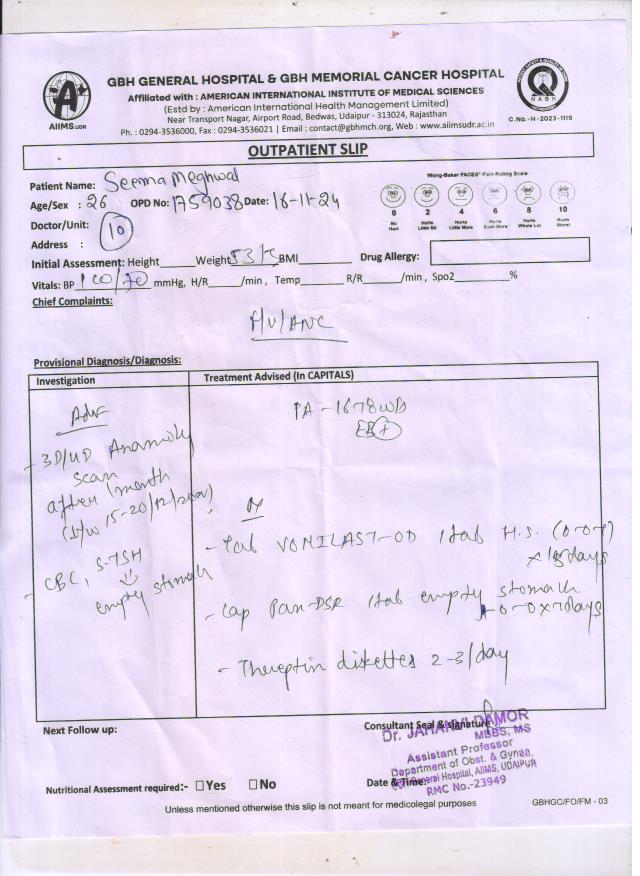 GBH GENERAL HOSPITAL & GBH MEMORIAL CANCER HOSPITAL
Affiliated with : AMERICAN INTERNATIONAL INSTITUTE OF MEDICAL SCIENCES
(Estd by : American International Health Management Limited)
Near Transport Nagar, Airport Road, Bedwas, Udaipur - 313024, Rajasthan
Ph. : 0294-3536000, Fax : 0294-3536021 | Email : contact@gbhmch.org, Web : www.aiimsudr.ac.in
AIIMS.UDR
NABH
C. No.- H - 2023 - 1119
OUTPATIENT SLIP
Patient Name: Seema Meghwal
Age/Sex : 26 OPD No: 1759038 Date: 16-11-24
Doctor/Unit: 10
Address :
Wong-Baker FACES® Pain Rating Scale
0 2 4 6 8 10
No Hurt Hurts Little Bit Hurts Little More Hurts Even More Hurts Whole Lot Hurts Worst
Initial Assessment: Height Weight 53 BMI Drug Allergy:
Vitals: BP 100/70 mmHg, H/R /min, Temp R/R /min, Spo2 %
Chief Complaints:
F/U/ANC
Provisional Diagnosis/Diagnosis:
Investigation
Treatment Advised (In CAPITALS)
Adv
- 3D/4D Anamoly
scan
after 1 month
15-20/12/
- CBC, S-TSH
empty stomach
PA - 16
- Tab VONILAST-OD 1tab H.S. (0-0-1)
x 15 days
- Cap Pan-DSR 1tab empty stomach
1-0-0 x 7 days
- Thereptin diskettes 2-3/day
Next Follow up:
Consultant Seal & signature
Dr. JAHANVI DAMOR
MBBS, MS
Assistant Professor
Department of Obst. & Gynae.
General Hospital, AIIMS, UDAIPUR
RMC No.-23949
Date & Time:
Nutritional Assessment required:- Yes No
Unless mentioned otherwise this slip is not meant for medicolegal purposes
GBHGC/FO/FM - 03